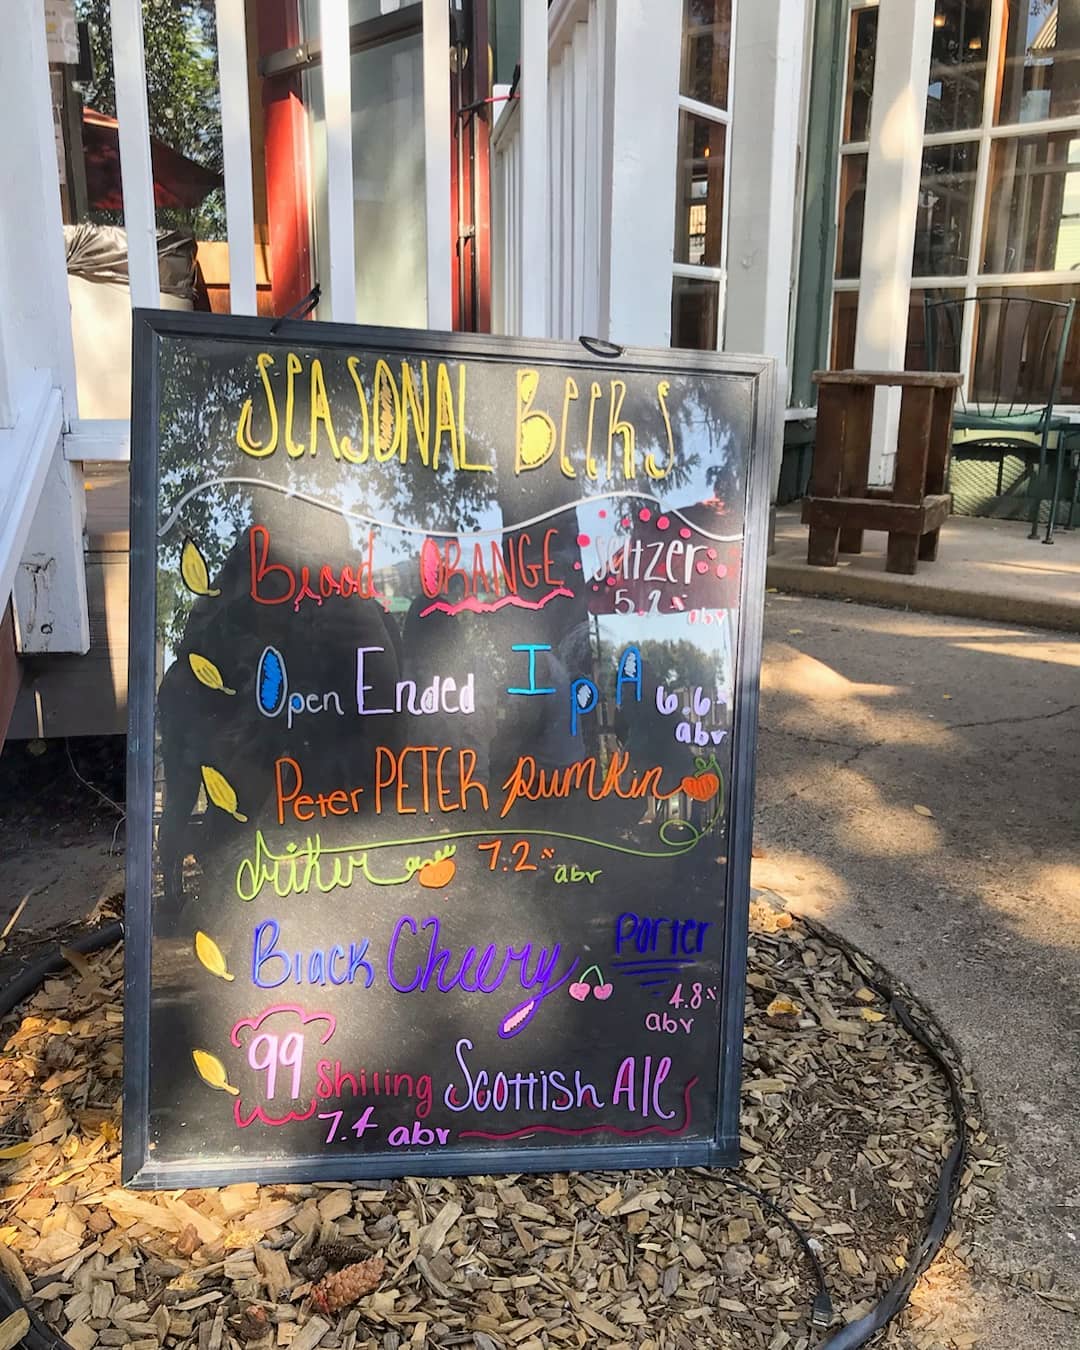 SEASONAL BEERS
Blood ORANGE Seltzer
5.2% abv
Open Ended IPA 6.6%
abv
Peter PETER Pumkin
7.2% abv
Black Cherry Porter
4.8%
abv
99 Shilling Scottish Ale
7.4 abv